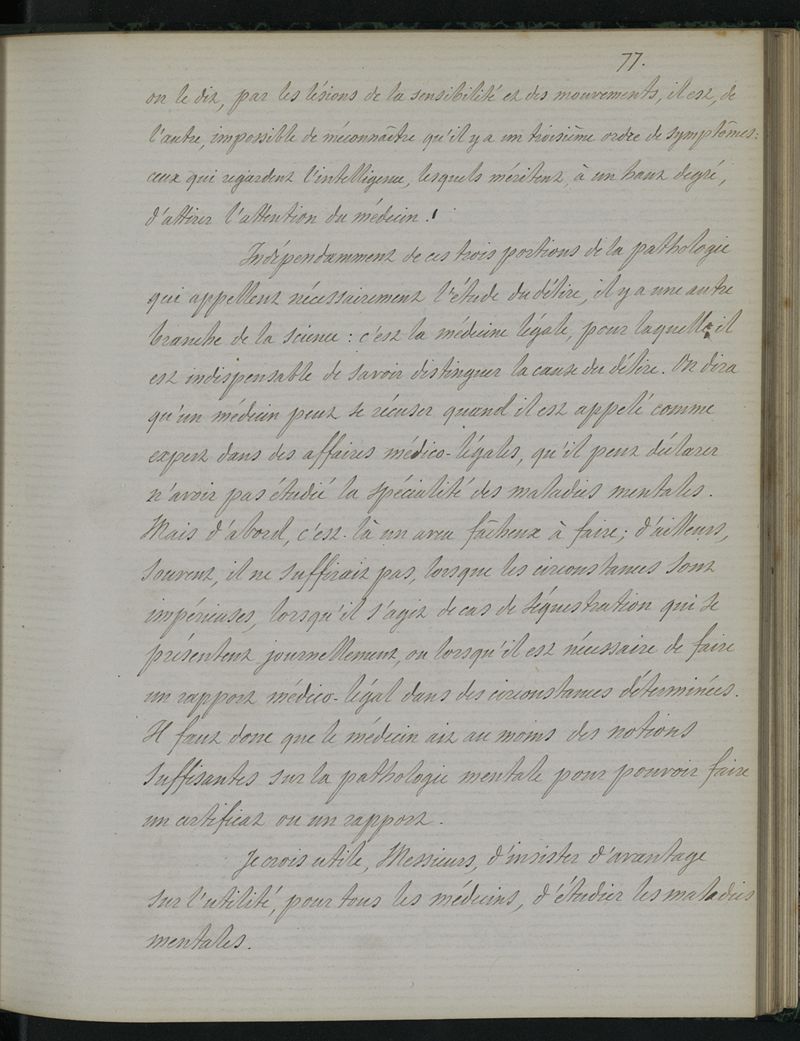 77.
on le dit, par les lésions de la sensibilité et des mouvements, il est, de
l'autre, impossible de méconnaître qu'il y a un troisième ordre de symptômes:
ceux qui regardent l'intelligence, lesquels méritent, à un haut degré,
d'attirer l'attention du médecin.!
Indépendamment de ces trois portions de la pathologie
qui appellent nécessairement l'étude du délire, il y a une autre
branche de la science : c'est la médecine légale, pour laquelle il
est indispensable de savoir distinguer la cause du délire. On dira
qu'un médecin peut se récuser quand il est appelé comme
expert dans des affaires médico-légales, qu'il peut déclarer
n'avoir pas étudié la spécialité des maladies mentales.
Mais d'abord, c'est là un aveu fâcheux à faire; d'ailleurs,
souvent, il ne suffirait pas, lorsque les circonstances sont
impérieuses, lorsqu'il s'agit de cas de séquestration qui se
présentent journellement, ou lorsqu'il est nécessaire de faire
un rapport médico-légal dans des circonstances déterminées.
Il faut donc que le médecin ait au moins des notions
suffisantes sur la pathologie mentale pour pouvoir faire
un certificat ou un rapport.
Je crois utile, Messieurs, d'insister d'avantage
sur l'utilité, pour tous les médecins, d'étudier les maladies
mentales.